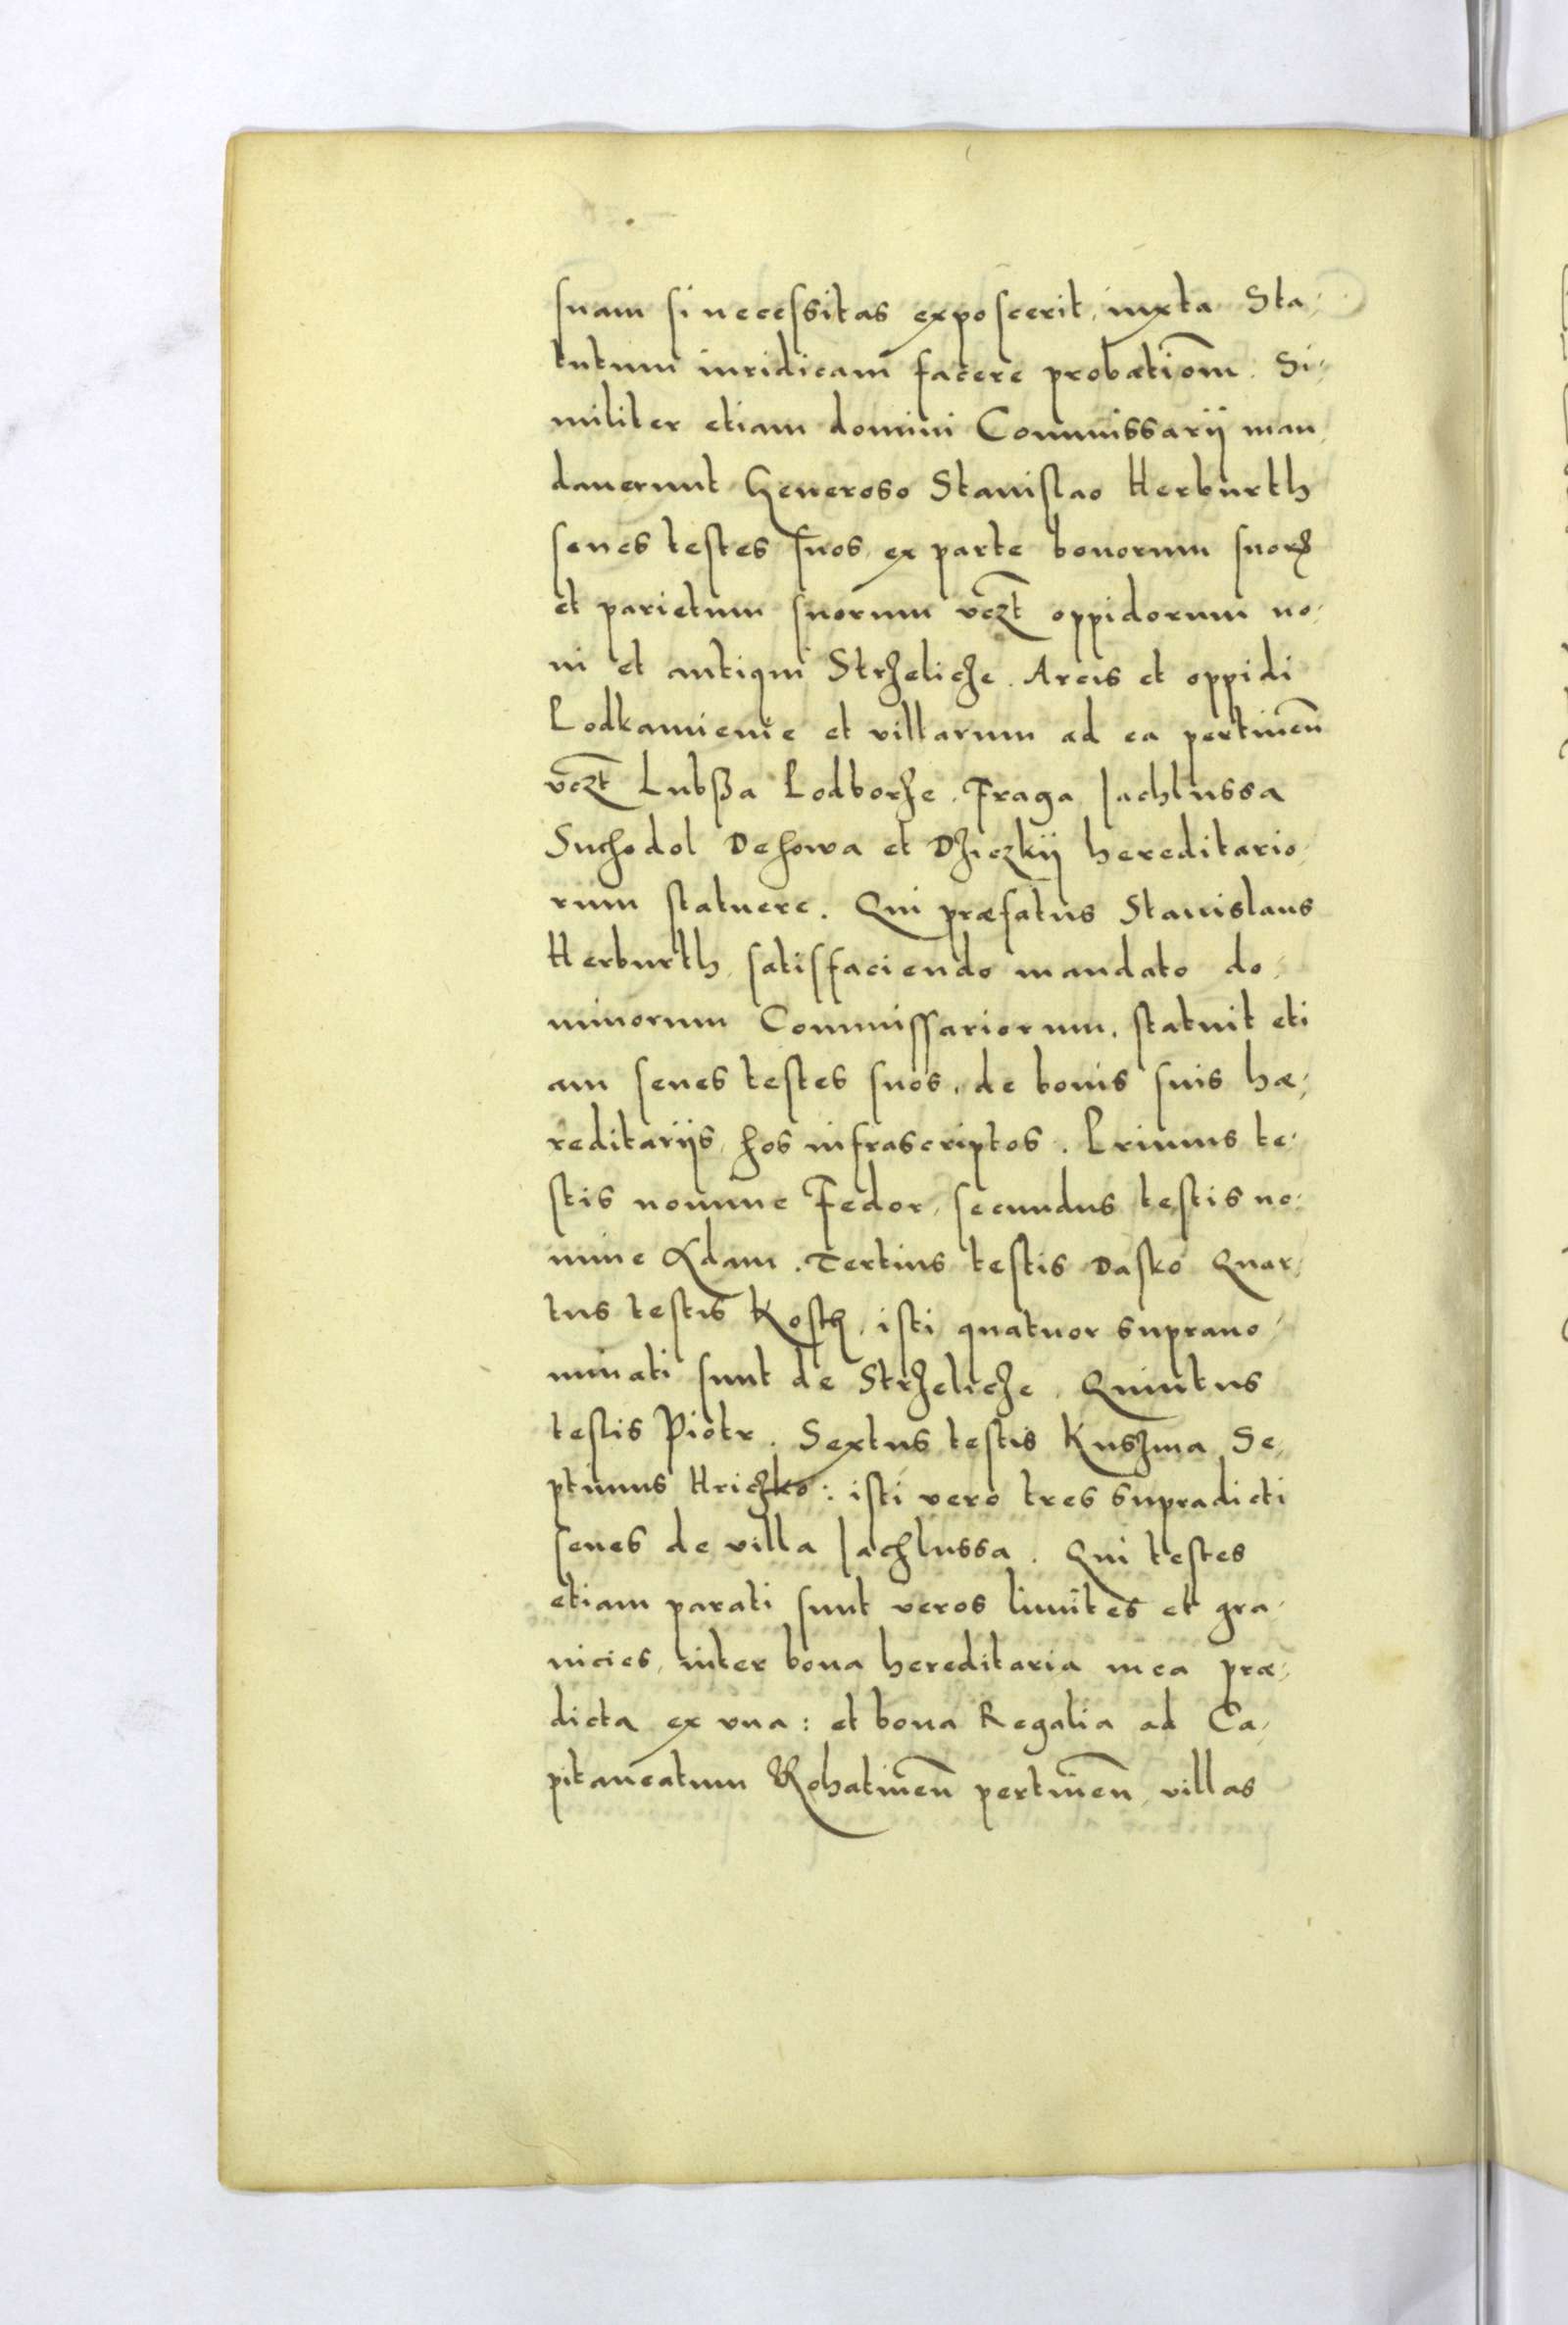 suam si necessitas exposcerit, iuxta Sta-
tutum iuridicam facere probationm̄. Si-
militer etiam domini Commissarij man
dauerunt Generoso Stanislao Herburth
senes testes suos, ex parte bonorum suorꝝ
et parietum suorum vczt̄ oppidorum no-
ui et antiqui Strzelicze. Arcis et oppidi
Podkamienie et villarum ad ea pertinen̄
vczt̄ Lubßa Podborze. Fraga, Jachlussa
Suchodol Dehowa et Dziczkij hereditario-
rum statuere. Qui præfatus Stanislaus
Herburth, satisfaciendo mandato do-
minorum Commissariorum, statuit eti
am senes testes suos, de bonis suis hæ-
reditarijs, hos infrascriptos. Primus te-
stis nomine Fedor, secundus testis no-
mine Adam. Tertius testis Dasko Quar-
tus testis Kosth, isti quatuor suprano-
minati sunt de Strzelicze. Quintus
testis Piotr. Sextus testis Kuszma Se-
ptimus Hriczko: isti vero tres supradicti
senes de villa Jachlussa. Qui testes
etiam parati sunt veros limites et gra-
nicies, inter bona hereditaria mea præ-
dicta ex vna: et bona Regalia ad Ca-
pitaneatum Rohatinen̄ pertinen̄, villas